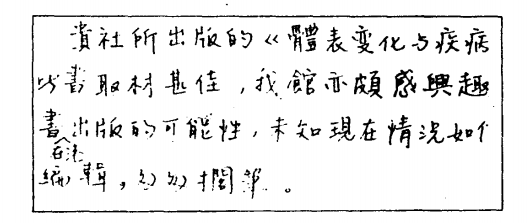 貴社所出版的《體表变化与疾病
此書取材甚佳，我館亦頗感興趣
書出版的可能性，未知現在情况如个
在法
編輯，匆匆擱筆。